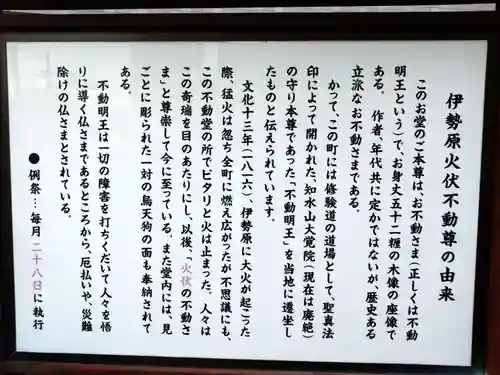 伊勢原火伏不動尊の由来
このお堂のご本尊は、お不動さま(正しくは不動
明王という)で、お身丈五十二糎の木像の座像で
ある。 作者、年代共に定かではないが、歴史ある
立派なお不動さまである。
かつて、この町には修験道の道場として、聖真法
印によって開かれた、知水山大覚院(現在は廃絶)
の守り本尊であった「不動明王」を当地に遷坐し
たものと伝えられています。
文化十三年(一八一六)、伊勢原に大火が起こった
際、猛火は忽ち全町に燃え広がったが不思議にも、
この不動堂の所でピタリと火は止まった。人々は
この奇瑞を目のあたりにし、以後、「火伏の不動さ
ま」と尊崇して今に至っている。また堂内には、見
ごとに彫られた一対の烏天狗の面も奉納されて
ある。
不動明王は一切の障害を打ちくだいて人々を悟
りに導く仏さまであるところから、厄払いや、災難
除けの仏さまとされている。
●例祭…毎月二十八日に執行